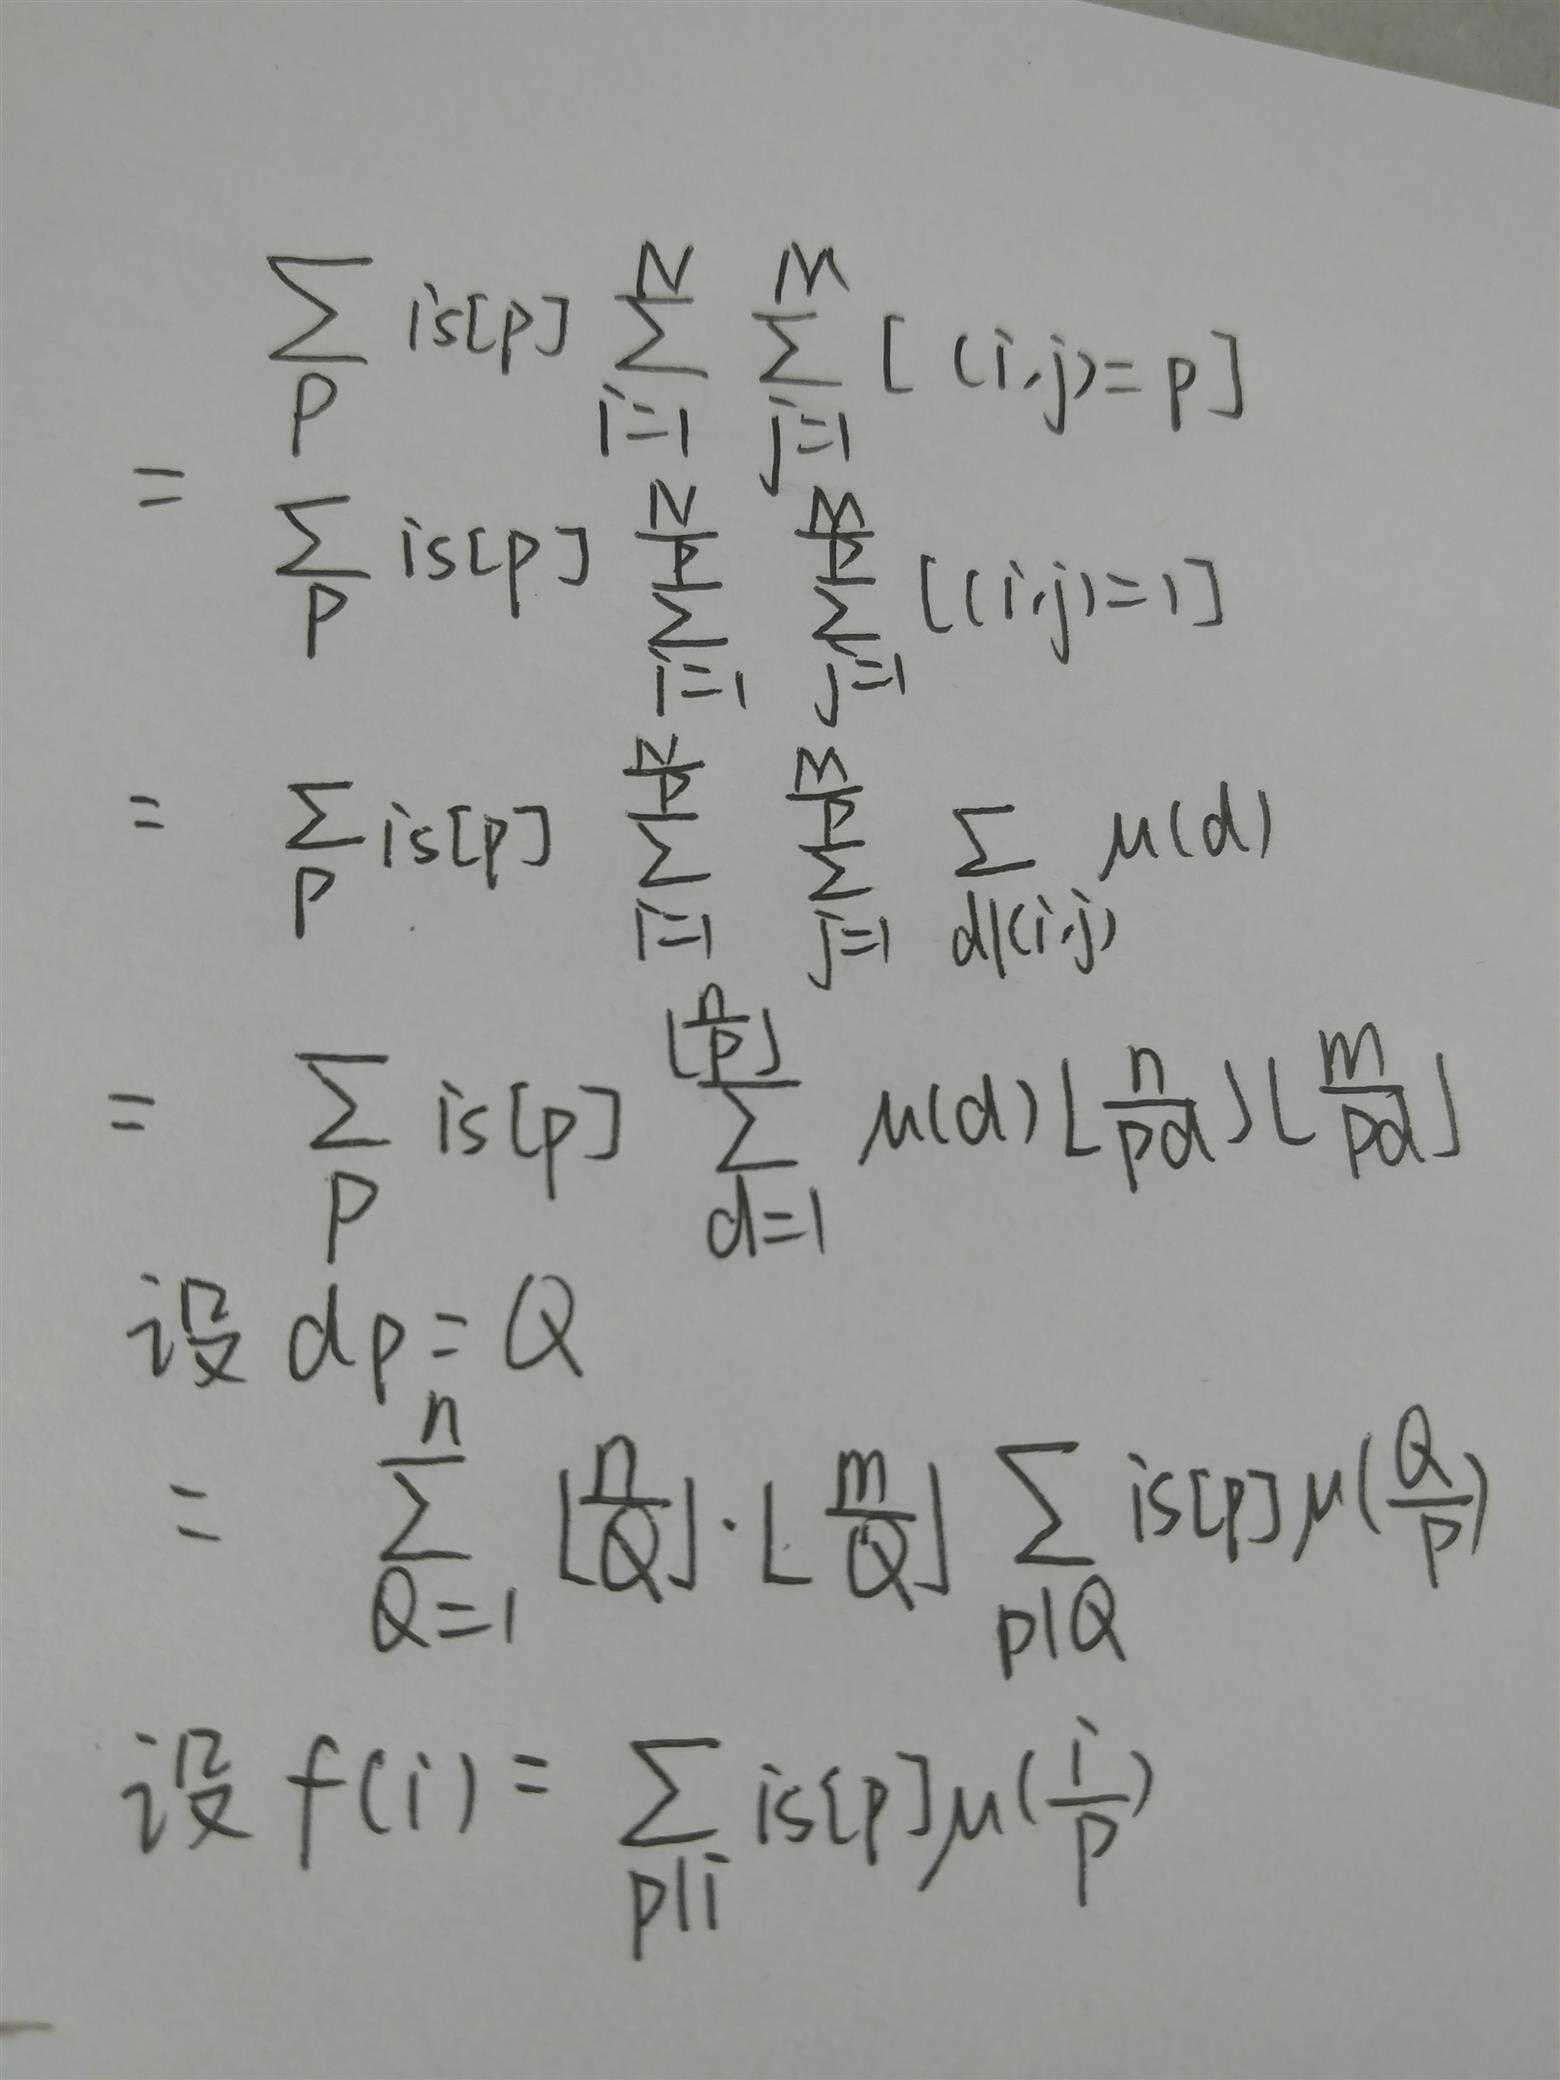 ∑_p is[p] ∑_{i=1}^{N} ∑_{j=1}^{M} [(i,j)=p]
= ∑_p is[p] ∑_{i=1}^{N/p} ∑_{j=1}^{M/p} [(i,j)=1]
= ∑_p is[p] ∑_{i=1}^{N/p} ∑_{j=1}^{M/p} ∑_{d|(i,j)} μ(d)
= ∑_p is[p] ∑_{d=1}^{⌊n/p⌋} μ(d) ⌊n/pd⌋ ⌊m/pd⌋
设 dp=Q
= ∑_{Q=1}^{n} ⌊n/Q⌋·⌊m/Q⌋ ∑_{p|Q} is[p] μ(Q/p)
设 f(i) = ∑_{p|i} is[p] μ(i/p)